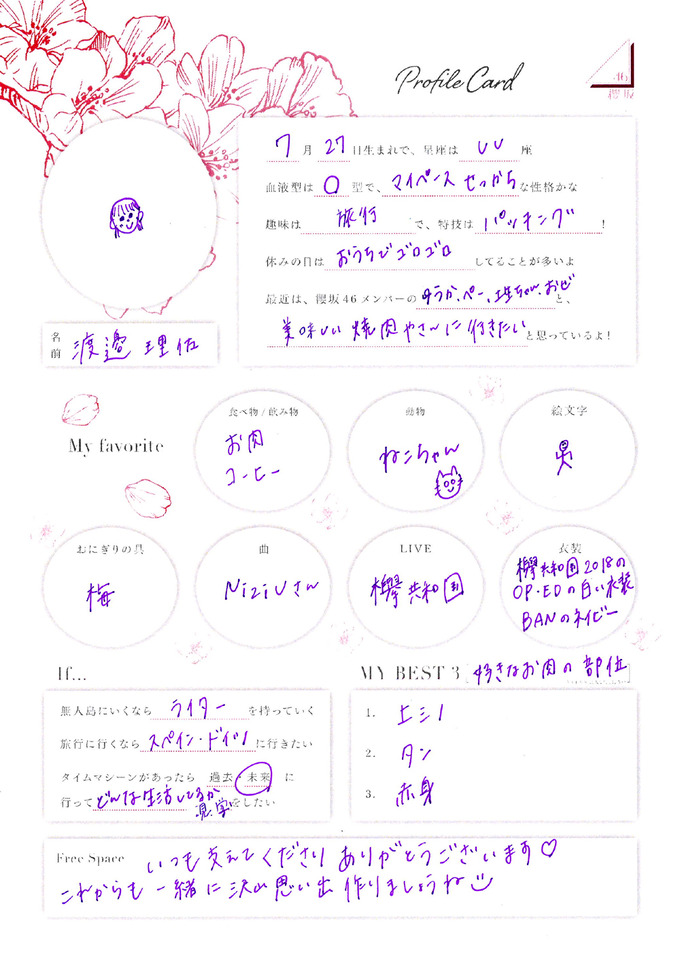 Profile Card
46
櫻坂
7月27日生まれで、星座はしし座
血液型はO型で、マイペース せっかちな性格かな
趣味は旅行で、特技はパッキング!
休みの日はおうちでゴロゴロしてることが多いよ
最近は、櫻坂46メンバーのゆうか、ぺー、土生ちゃん、おぜと、
美味しい焼肉やさんに行きたいと思っているよ!
名前 渡邉 理佐
My favorite
食べ物/飲み物
お肉
コーヒー
動物
ねこちゃん
絵文字
おにぎりの具
梅
曲
NiziUさん
LIVE
欅共和国
衣装
欅共和国2018の
OP・EDの白い衣装
BANのネイビー
If...
無人島にいくならライターを持っていく
旅行に行くならスペイン・ドイツに行きたい
タイムマシーンがあったら 過去・未来 に
行ってどんな生活してるか見学をしたい
MY BEST 3 好きなお肉の部位
1. 上ミノ
2. タン
3. 赤身
Free Space いつも支えてくださり ありがとうございます♡
これからも 一緒に沢山思い出作りましょうね